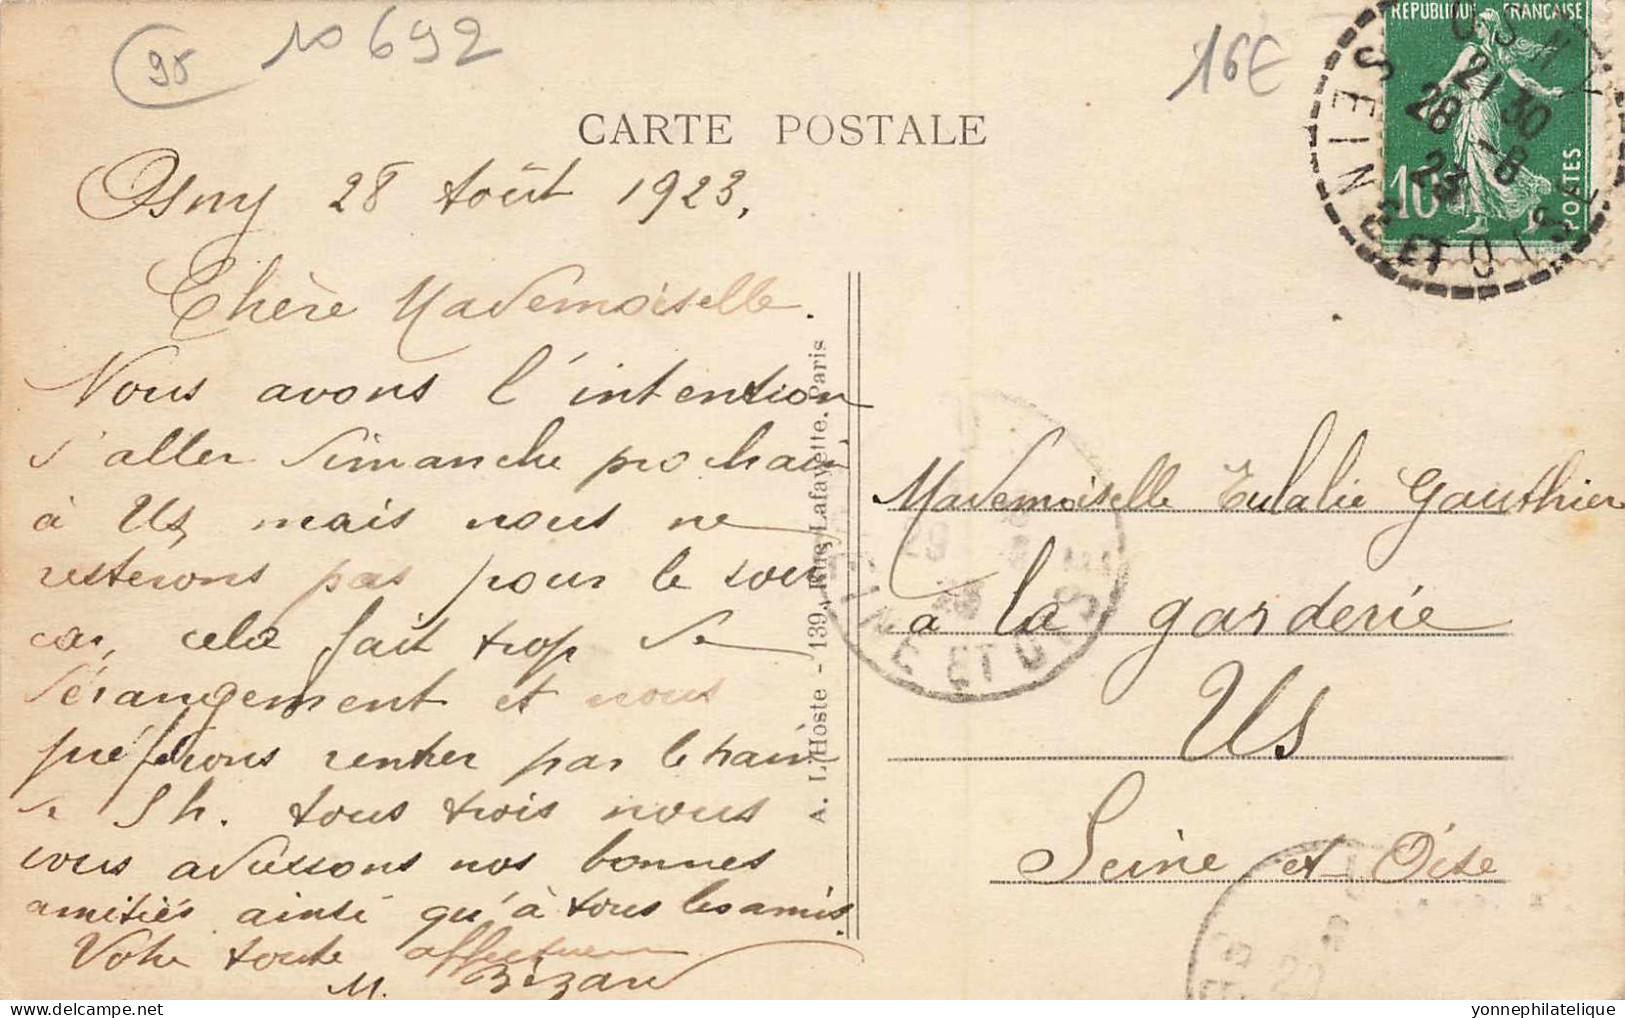 95
10692
16E
CARTE POSTALE
RÉPUBLIQUE FRANÇAISE
10
POSTES
OSNY
21 30
28 - 8
23
SEINE ET OISE
Osny 28 Août 1923.
Chère Mademoiselle.
Nous avons l'intention
d'aller dimanche prochain
à Us, mais nous ne
resterons pas pour le soir
car, cela fait trop de
dérangement et nous
préférons rentrer par le train
de 5h. tous trois nous
vous adressons nos bonnes
amitiés ainsi qu'à tous les amis.
Votre toute affectueuse
M.
A. L'Hoste - 139, Rue Lafayette. Paris
Mademoiselle Eulalie Gauthier
à la garderie
Us
Seine et Oise
SEINE ET OISE
yonnephilatelique